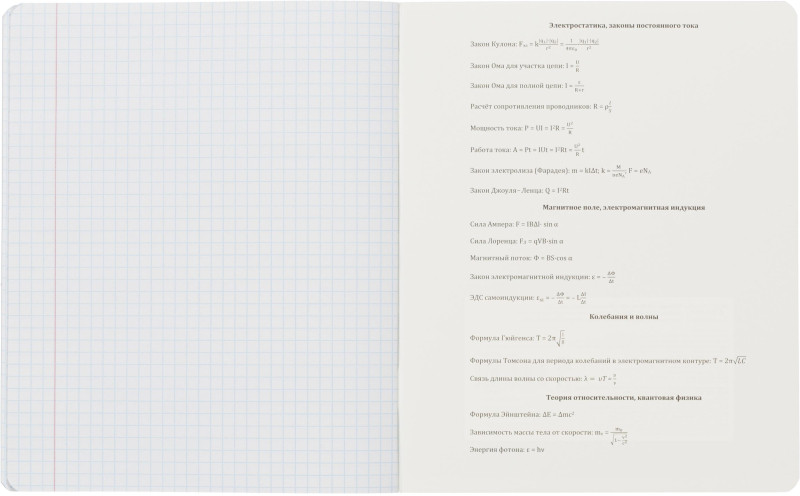 Электростатика, законы постоянного тока
Закон Кулона: Fэл = k |q₁| |q₂| / r² = 1 / 4πε₀ · |q₁| |q₂| / r²
Закон Ома для участка цепи: I = U/R
Закон Ома для полной цепи: I = ε/(R+r)
Расчёт сопротивления проводников: R = ρ l/S
Мощность тока: P = UI = I²R = U²/R
Работа тока: A = Pt = IUt = I²Rt = U²/R t
Закон электролиза (Фарадея): m = kIΔt; k = M/(neNₐ); F = eNₐ
Закон Джоуля–Ленца: Q = I²Rt
Магнитное поле, электромагнитная индукция
Сила Ампера: F = IBΔl· sin α
Сила Лоренца: Fл = qVB·sin α
Магнитный поток: Ф = BS·cos α
Закон электромагнитной индукции: ε = – ΔФ/Δt
ЭДС самоиндукции: εis = – ΔФ/Δt = – L ΔI/Δt
Колебания и волны
Формула Гюйгенса: T = 2π √(l/g)
Формулы Томсона для периода колебаний в электромагнитном контуре: T = 2π√LC
Связь длины волны со скоростью: λ = υT = υ/ν
Теория относительности, квантовая физика
Формула Эйнштейна: ΔE = Δmc²
Зависимость массы тела от скорости: mᵥ = m₀/√(1– v²/c²)
Энергия фотона: ε = hν